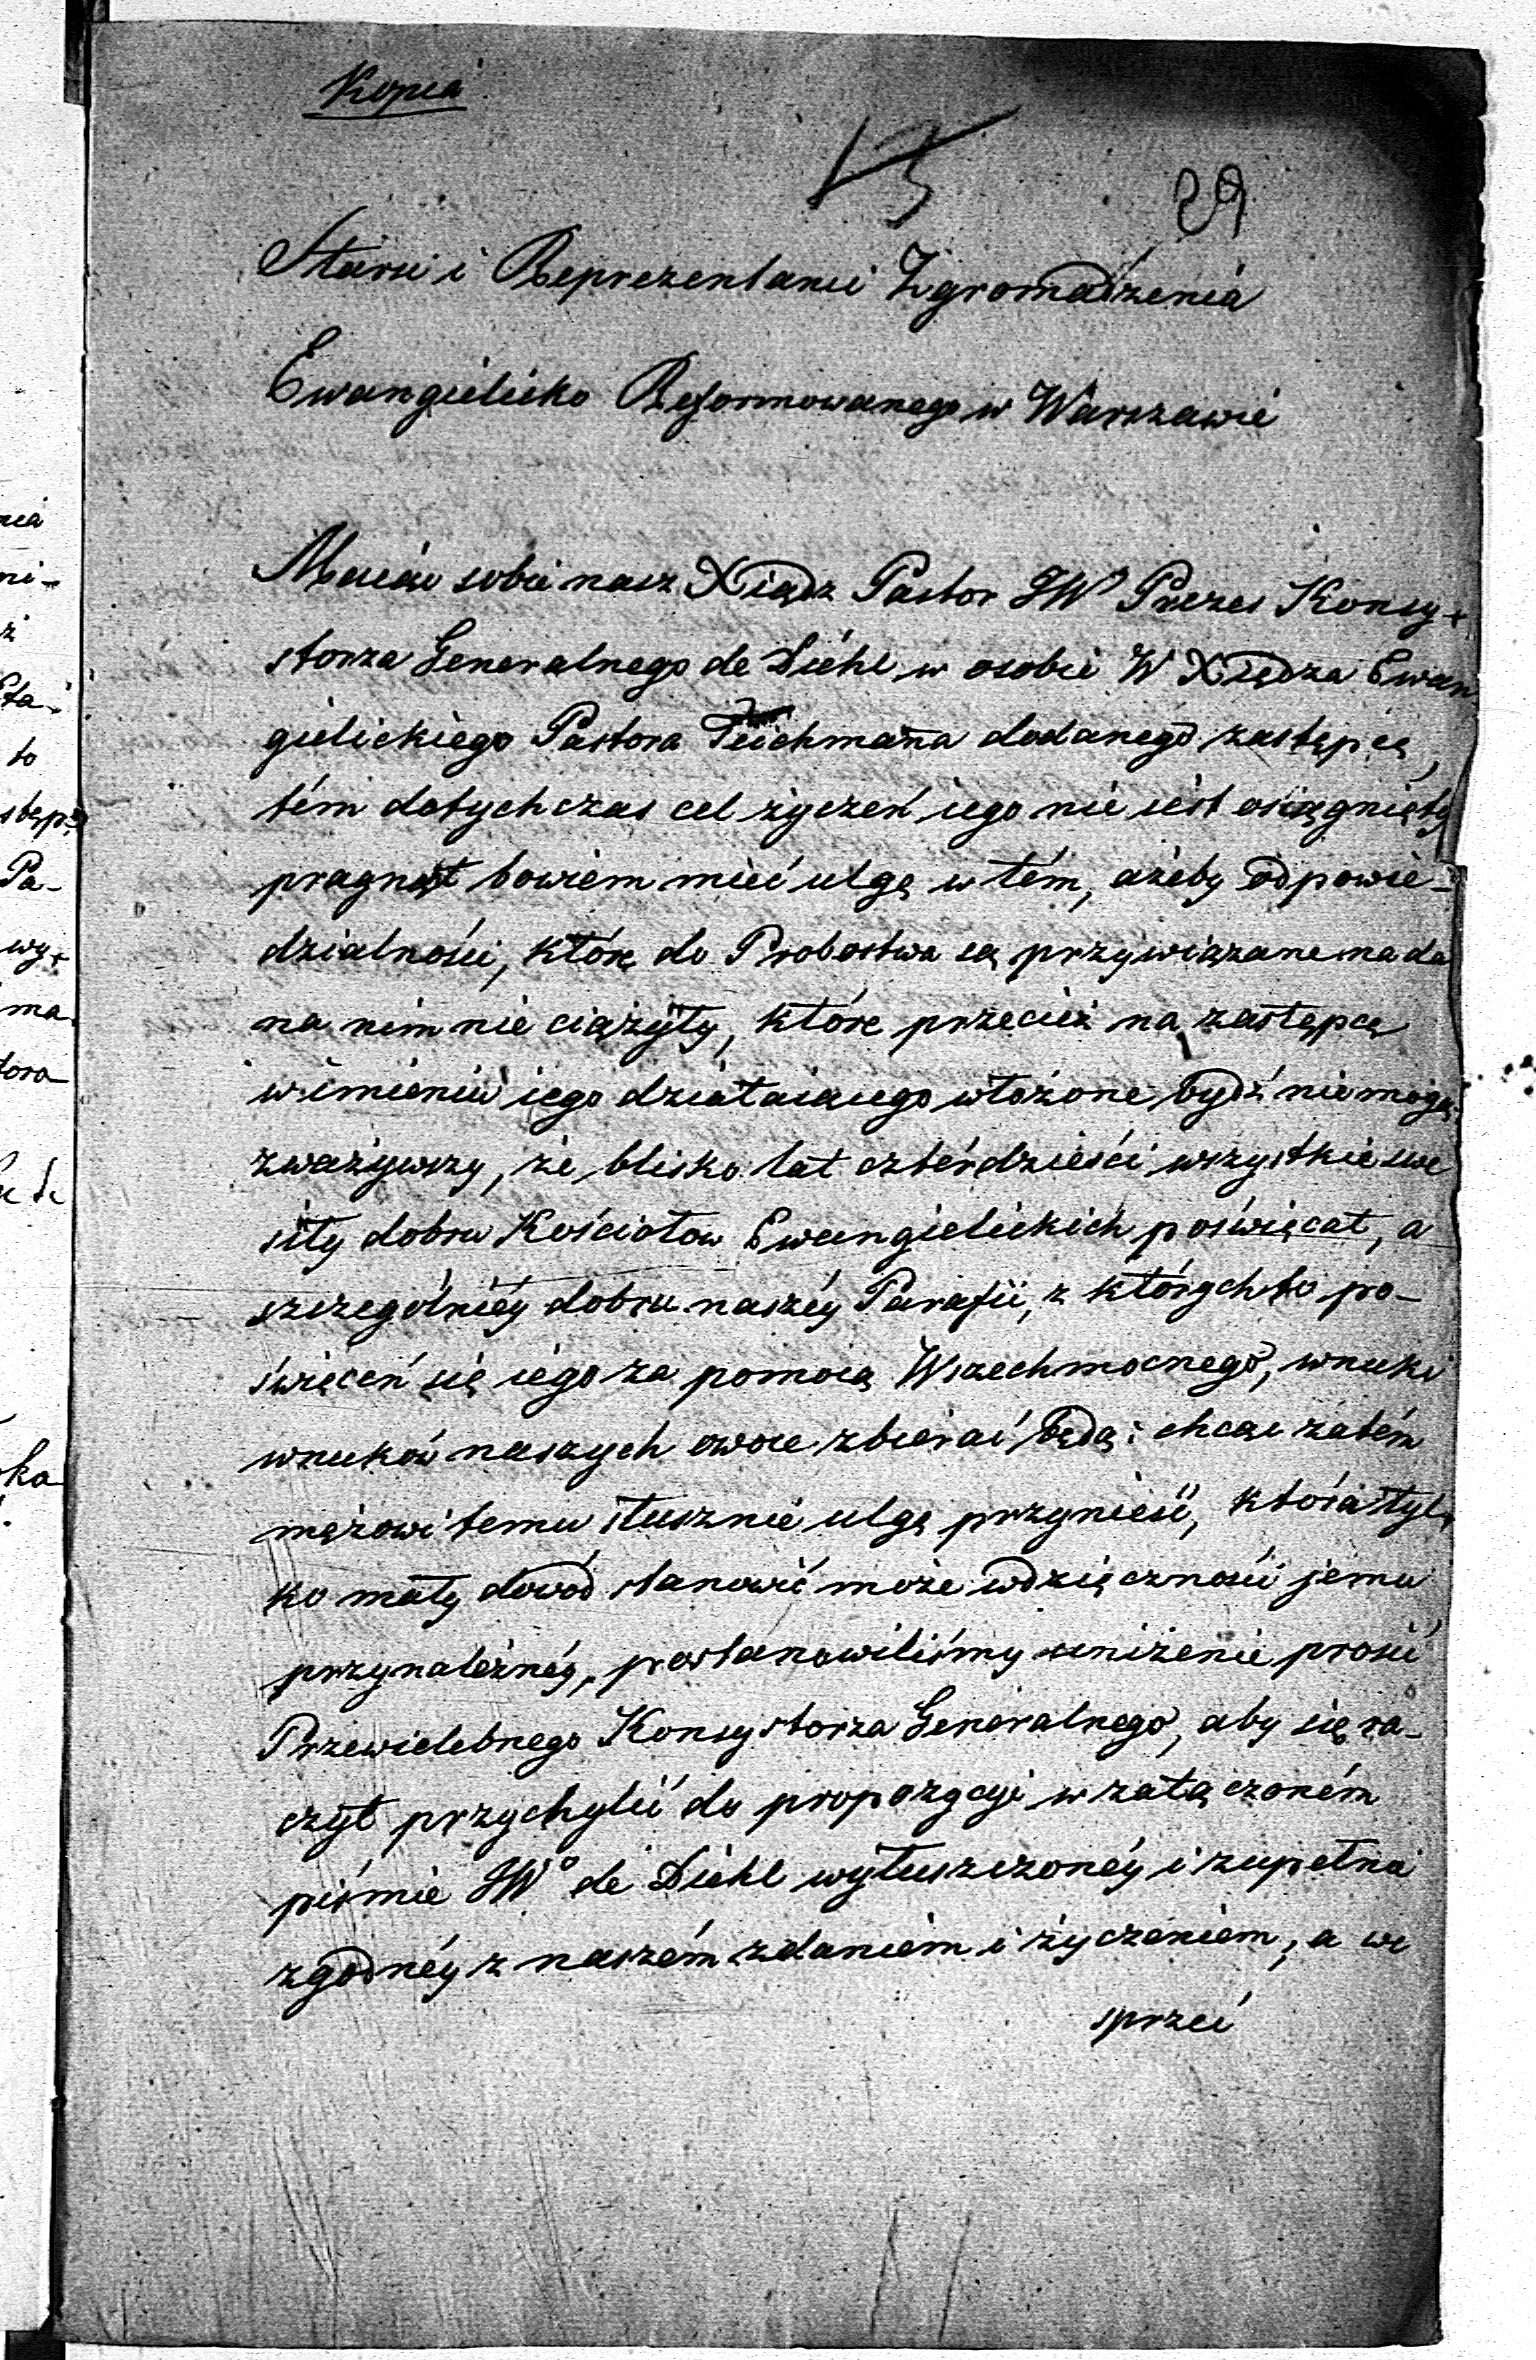 Kopia
13
29
Starsi i Reprezentanci Zgromadzenia
Ewangielicko Reformowanego w Warszawie
Maiąc sobie nasz Xiądz Pastor JW Prezes Konsy-
storza Generalnego de Diehl w osobie W Xiędza Ewan
gielickiego Pastora Teichmanna dodanego zastępcę,
tém dotychczas cel życzeń iego nie iest osiągnięty
pragnął bowiem mieć ulgę w tém, ażeby odpowie-
dzialności, które do Probostwa są przywiązane nada
na nim nie ciążyły, które przecież na zastępcę
w imieniu iego działaiącego włożone bydź nie mogą.
zważywszy, że blisko lat czterdzieści wszystkie swe
siły dobru Kościołow Ewangielickich poświęcał, a
szczególniéy dobru naszéy Parafii, z których to po-
święceń się iego za pomocą Wszechmocnego, wnuki
wnuków naszych owoce zbierać będą: chcąc zatém
mężowi temu słusznie ulgę przynieść, która tyl-
ko mały dowód stanowić może wdzięczności jemu
przynależnéy, postanowiliśmy uniżenie prosić
Przewielebnego Konsystorza Generalnego, aby się ra-
czył przychylić do propozycyi w załączoném
piśmie JWo de Diehl wyłuszczonéy i zupełnie
zgodnéy z naszém zdaniem i życzeniem, a w
sprzeć